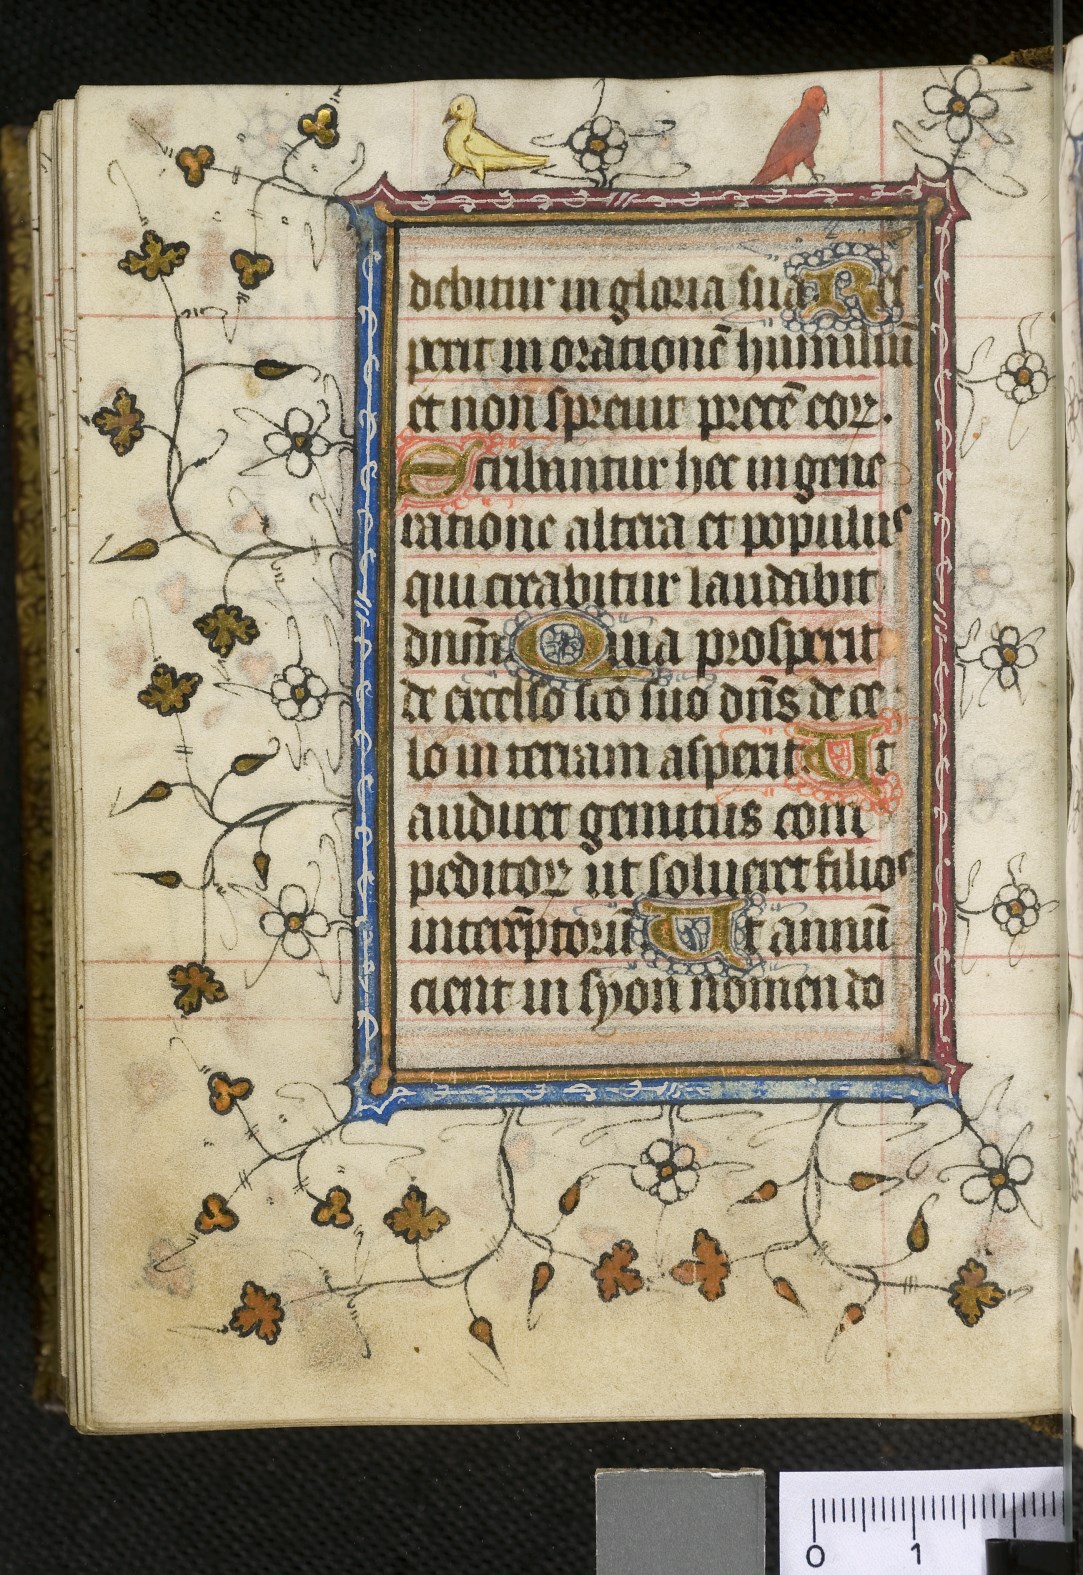 debitur in gloria sua Res
perit in orationē humiliū
et non spreuit precē eoꝝ.
Scribantur hec in gene
ratione altera et populus
qui creabitur laudabit
dnm̄ Quia prosperit
de excelso sco suo dn̄s de ce
lo in terram asperit Ut
audiret gemitus com
peditoꝝ ut solueret filios
interēptorū Ut annū
cient in syon nomen do
0 1